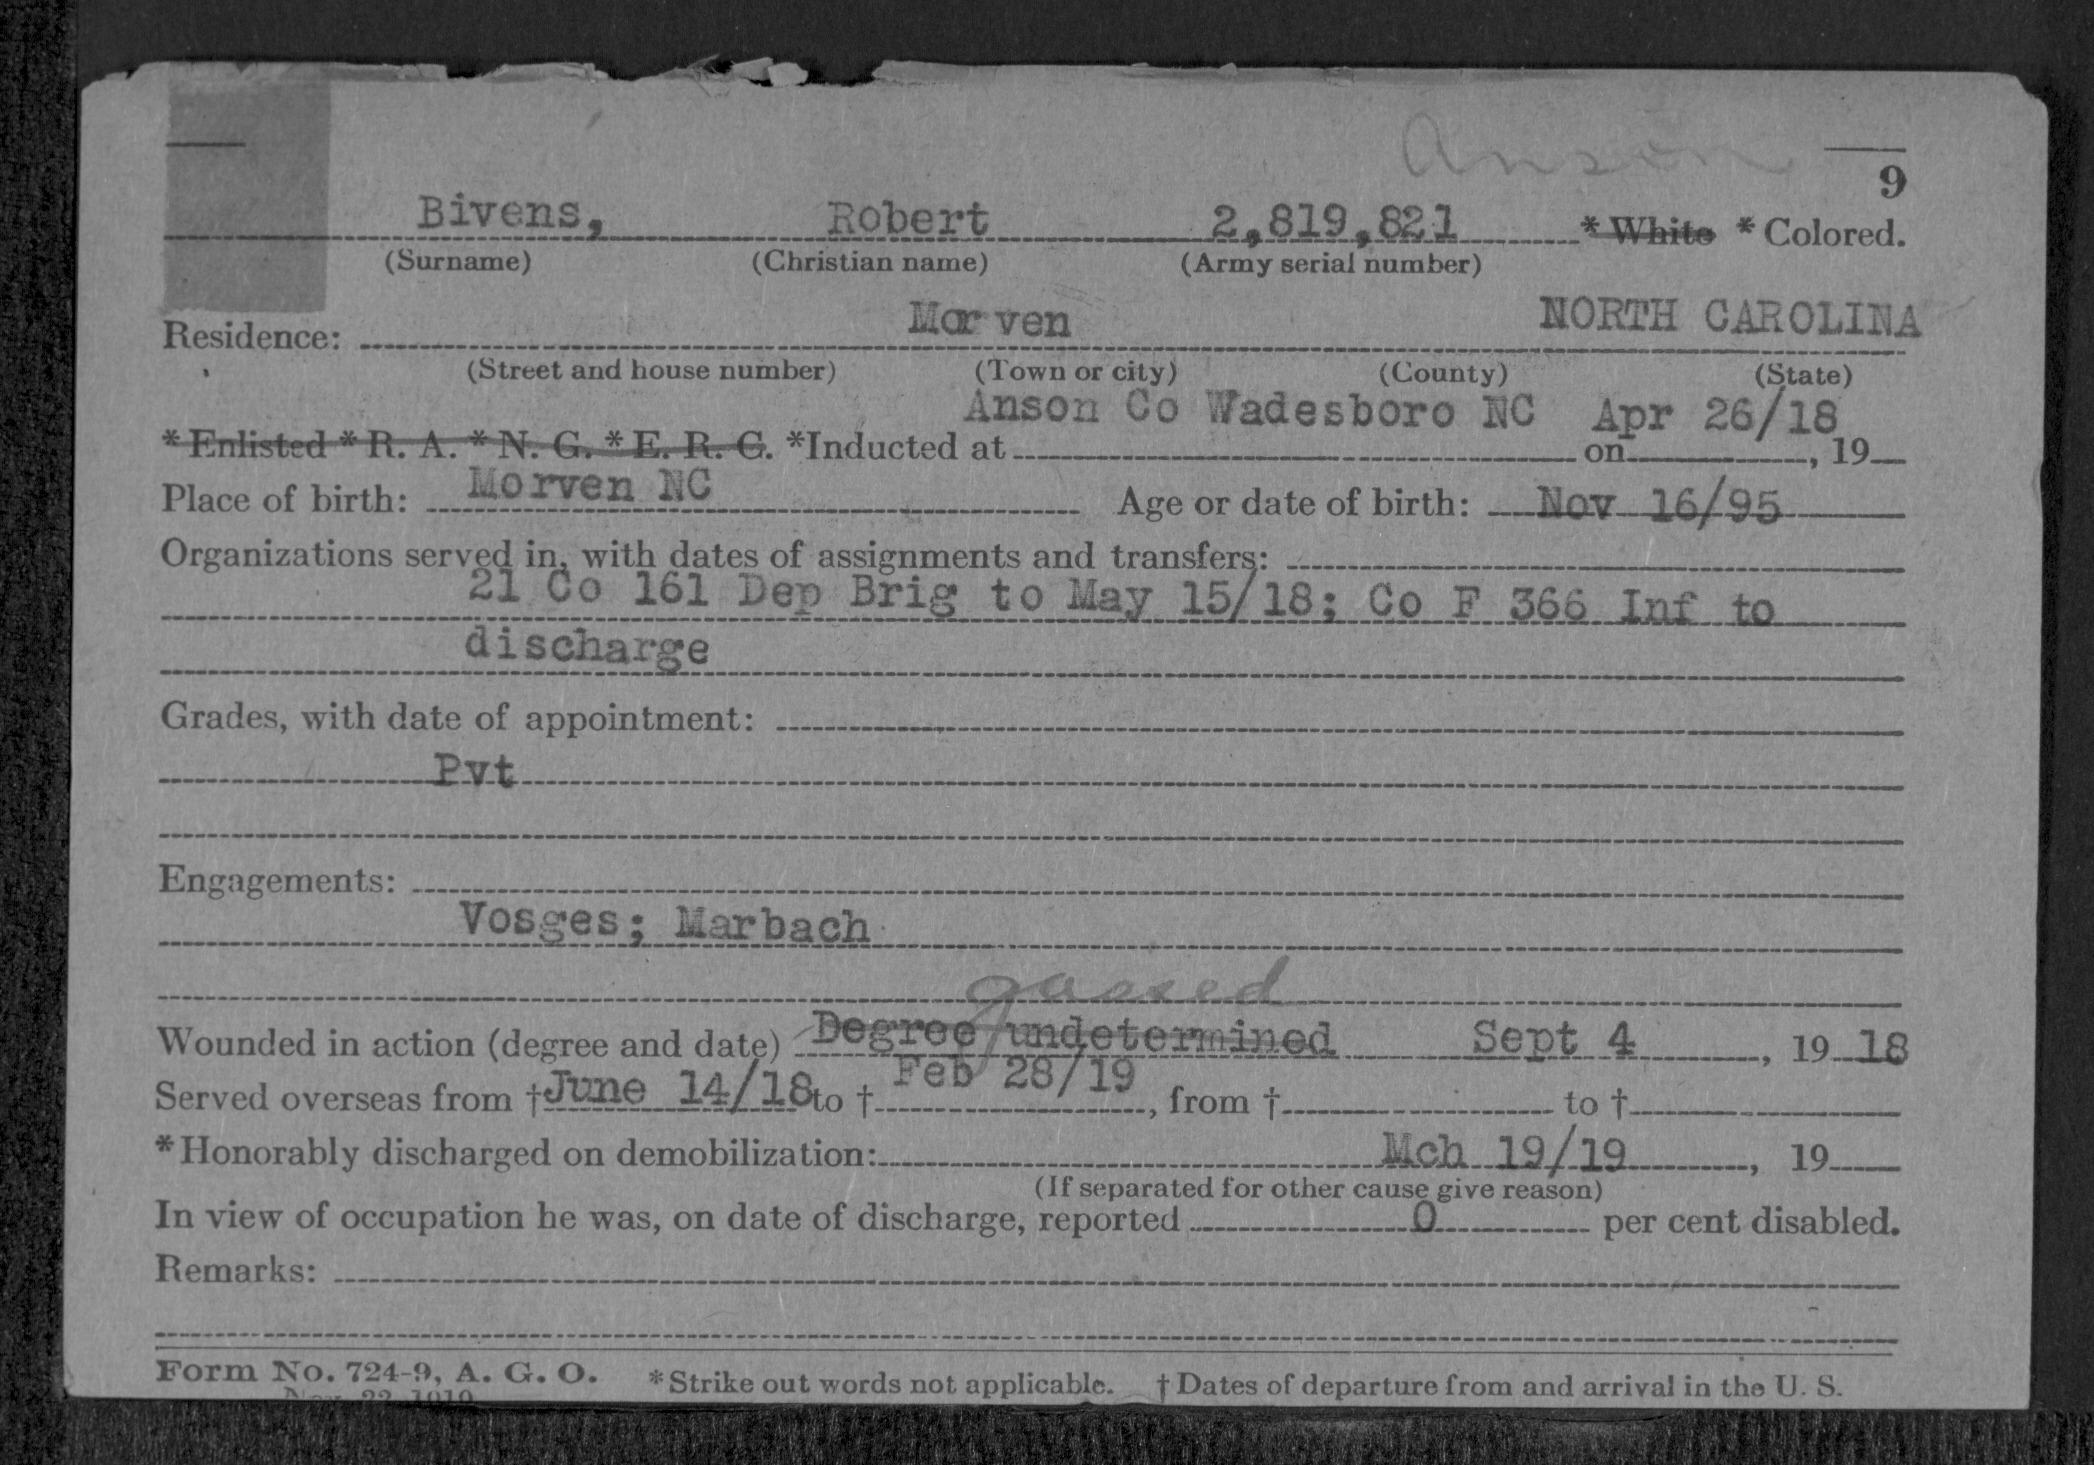 Anson
9
Bivens, Robert 2,819,821 * White * Colored.
(Surname) (Christian name) (Army serial number)
Residence: Morven NORTH CAROLINA
(Street and house number) (Town or city) (County) (State)
Anson Co Wadesboro NC Apr 26/18
* Enlisted * R. A. * N. G. * E. R. C. *Inducted at on , 19
Place of birth: Morven NC Age or date of birth: Nov 16/95
Organizations served in, with dates of assignments and transfers:
21 Co 161 Dep Brig to May 15/18; Co F 366 Inf to
discharge
Grades, with date of appointment:
Pvt
Engagements:
Vosges; Marbach
gassed
Wounded in action (degree and date) Degree undetermined Sept 4 , 19 18
Served overseas from † June 14/18 to † Feb 28/19 , from † to †
* Honorably discharged on demobilization: Mch 19/19 , 19
(If separated for other cause give reason)
In view of occupation he was, on date of discharge, reported 0 per cent disabled.
Remarks:
Form No. 724-9, A. G. O. * Strike out words not applicable. † Dates of departure from and arrival in the U. S.